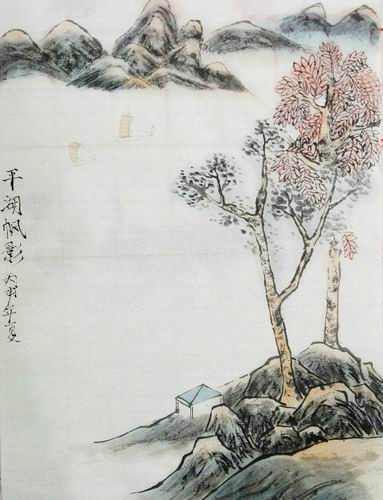 平湖帆影
丙申年夏